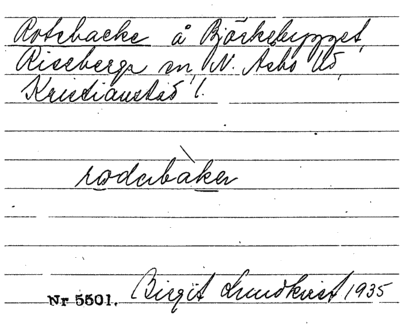 Rotsbacke å Björkebygget,
Riseberga sn, N. Åsbo hd,
Kristianstad l.
rodabaken
Nr 5501. Birgit Lundkvist 1935